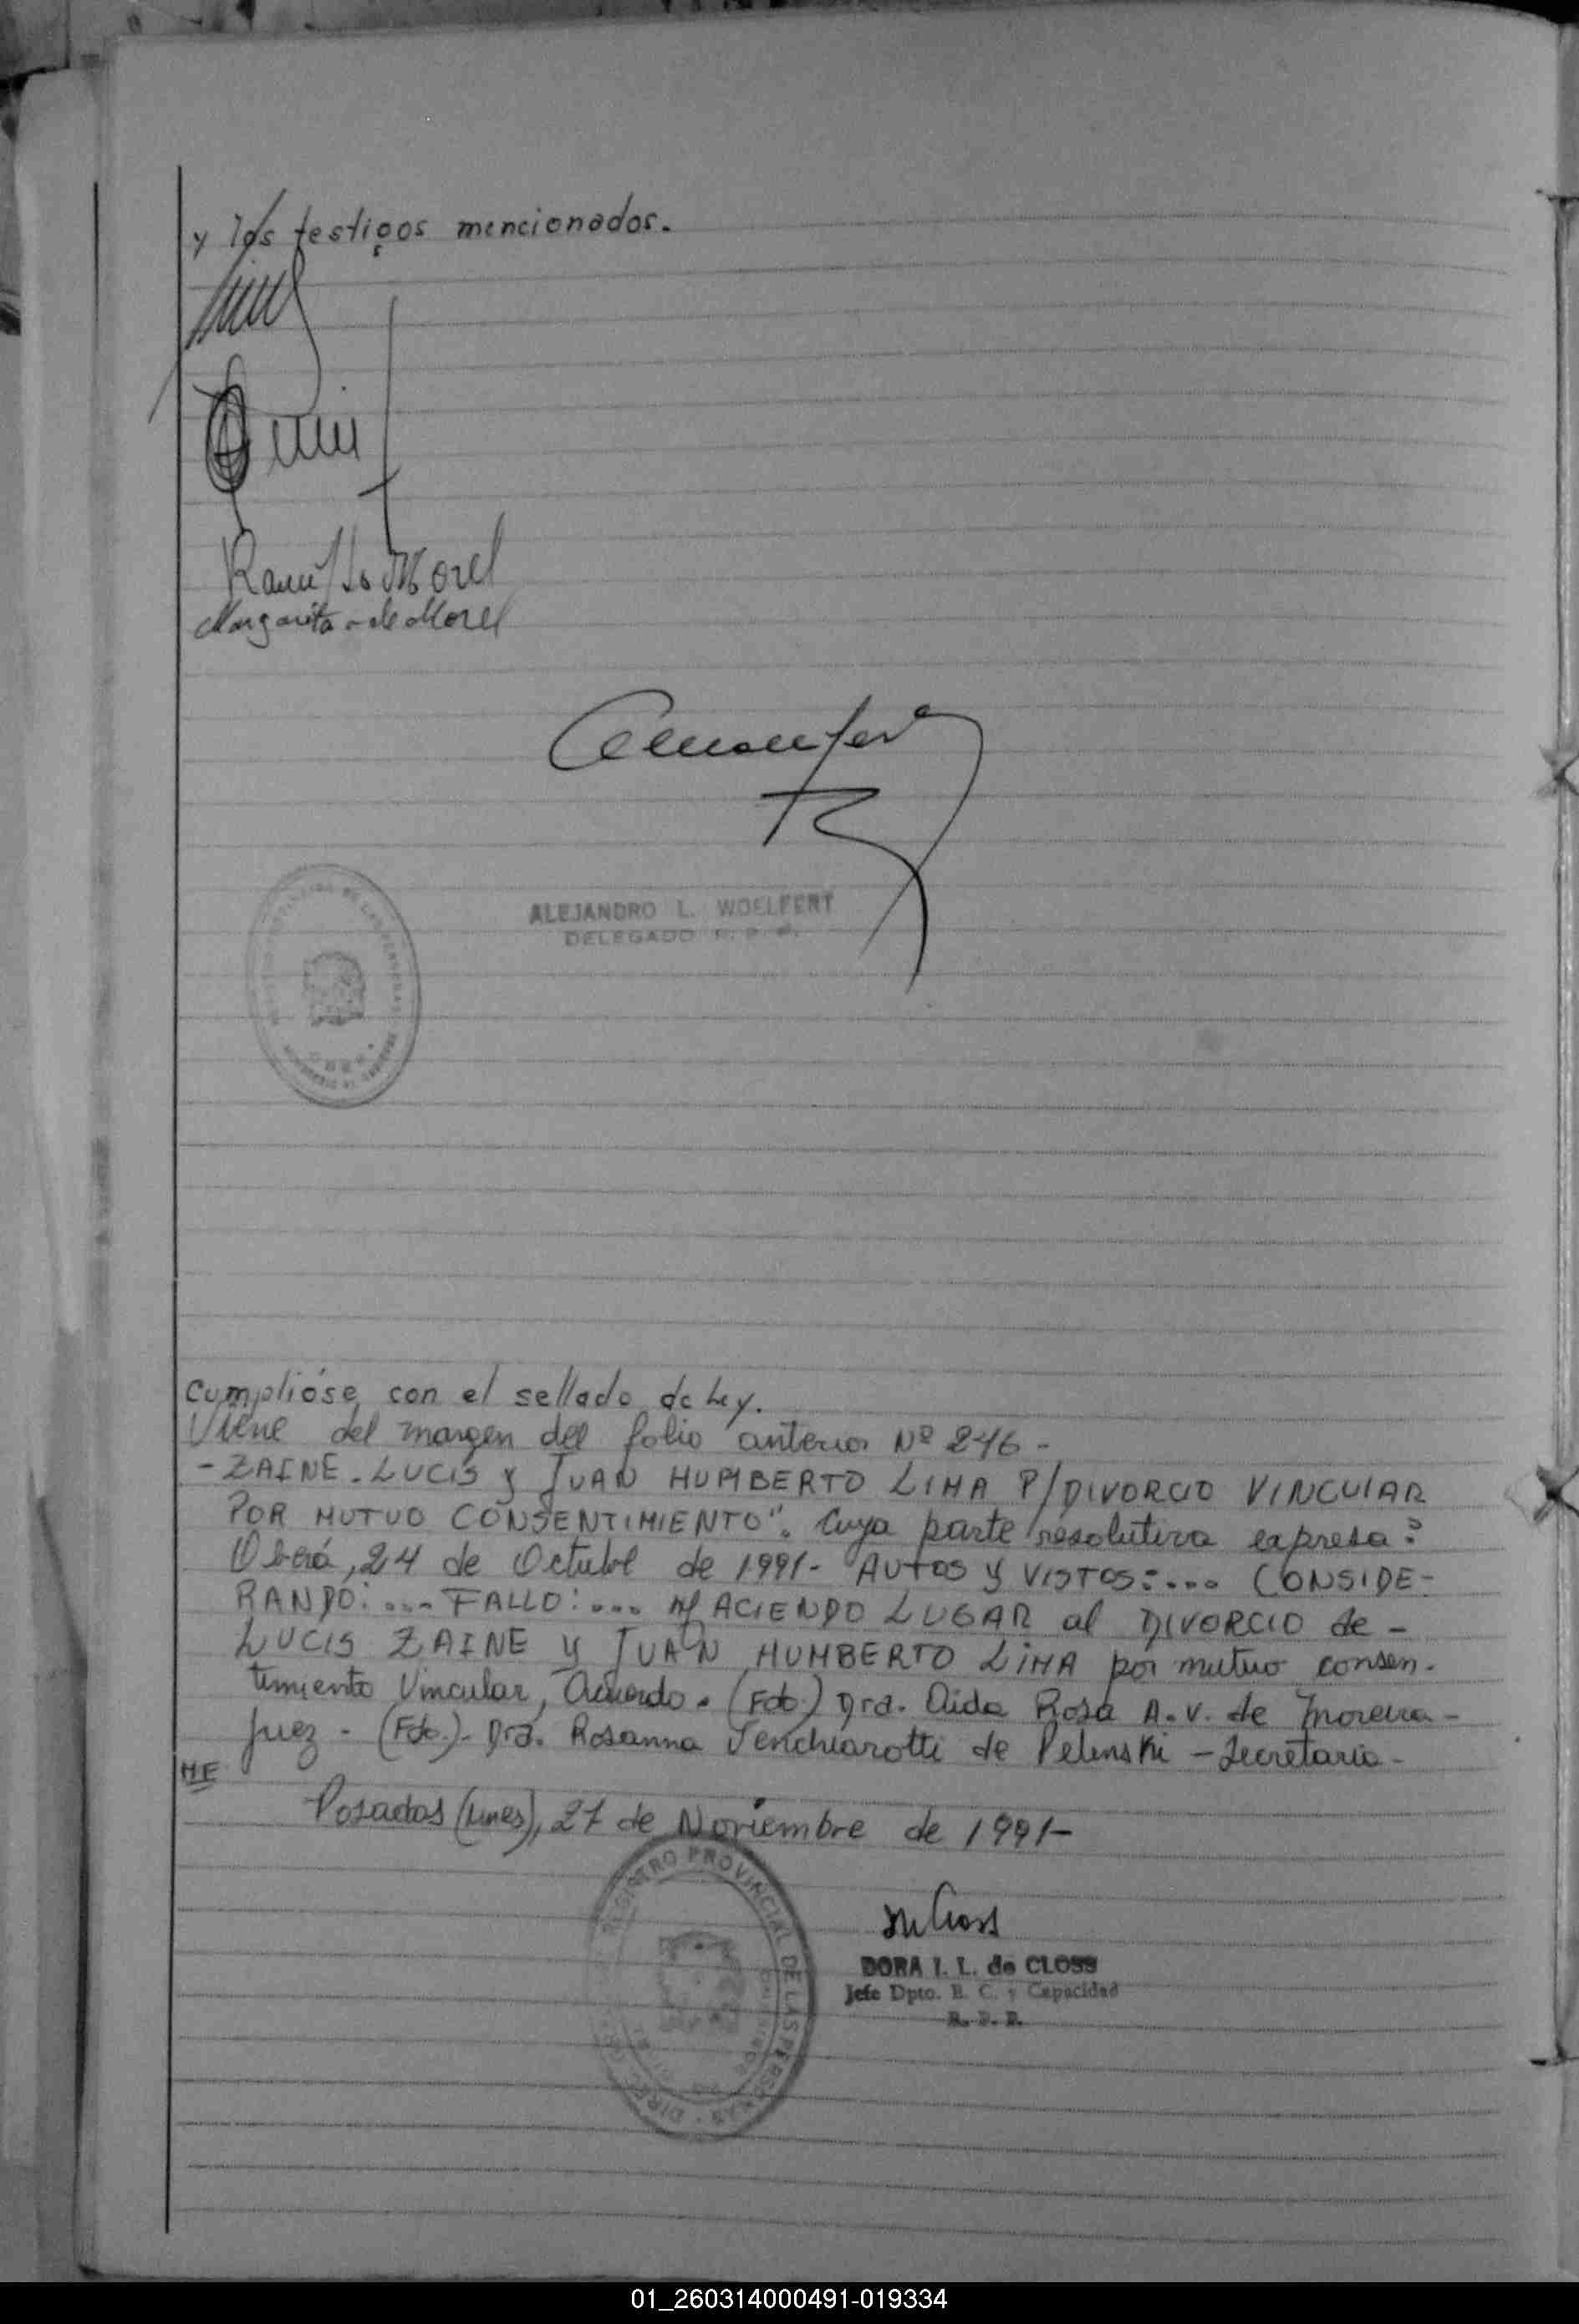 y los testigos mencionados.
Morel
Margarita de Morel
ALEJANDRO L. WOELFERT
DELEGADO R. P. P.
Cumplióse con el sellado de Ley.
Viene del margen del folio anterior Nº 246 -
- ZAINE - LUCIS y JUAN HUMBERTO LIMA P/DIVORCIO VINCULAR
POR MUTUO CONSENTIMIENTO". Cuya parte resolutiva expresa:
Oberá, 24 de Octubre de 1991- AUTOS y VISTOS:... CONSIDE-
RANDO:... FALLO:... HACIENDO LUGAR al DIVORCIO de -
LUCIS ZAINE y JUAN HUMBERTO LIMA por mutuo consen-
timiento Vincular, Acuerdo. (Fdo.) Dra. Aida Rosa A.V. de Moreira -
Juez - (Fdo.)- Dra. Rosanna Venchiarotti de Pelinski - Secretaria -
MF
Posadas (Mnes), 27 de Noviembre de 1991-
REGISTRO PROVINCIAL DE LAS PERSONAS
DORA I. L. de CLOSS
Jefe Dpto. E. C. y Capacidad
R. P. P.
01_260314000491-019334